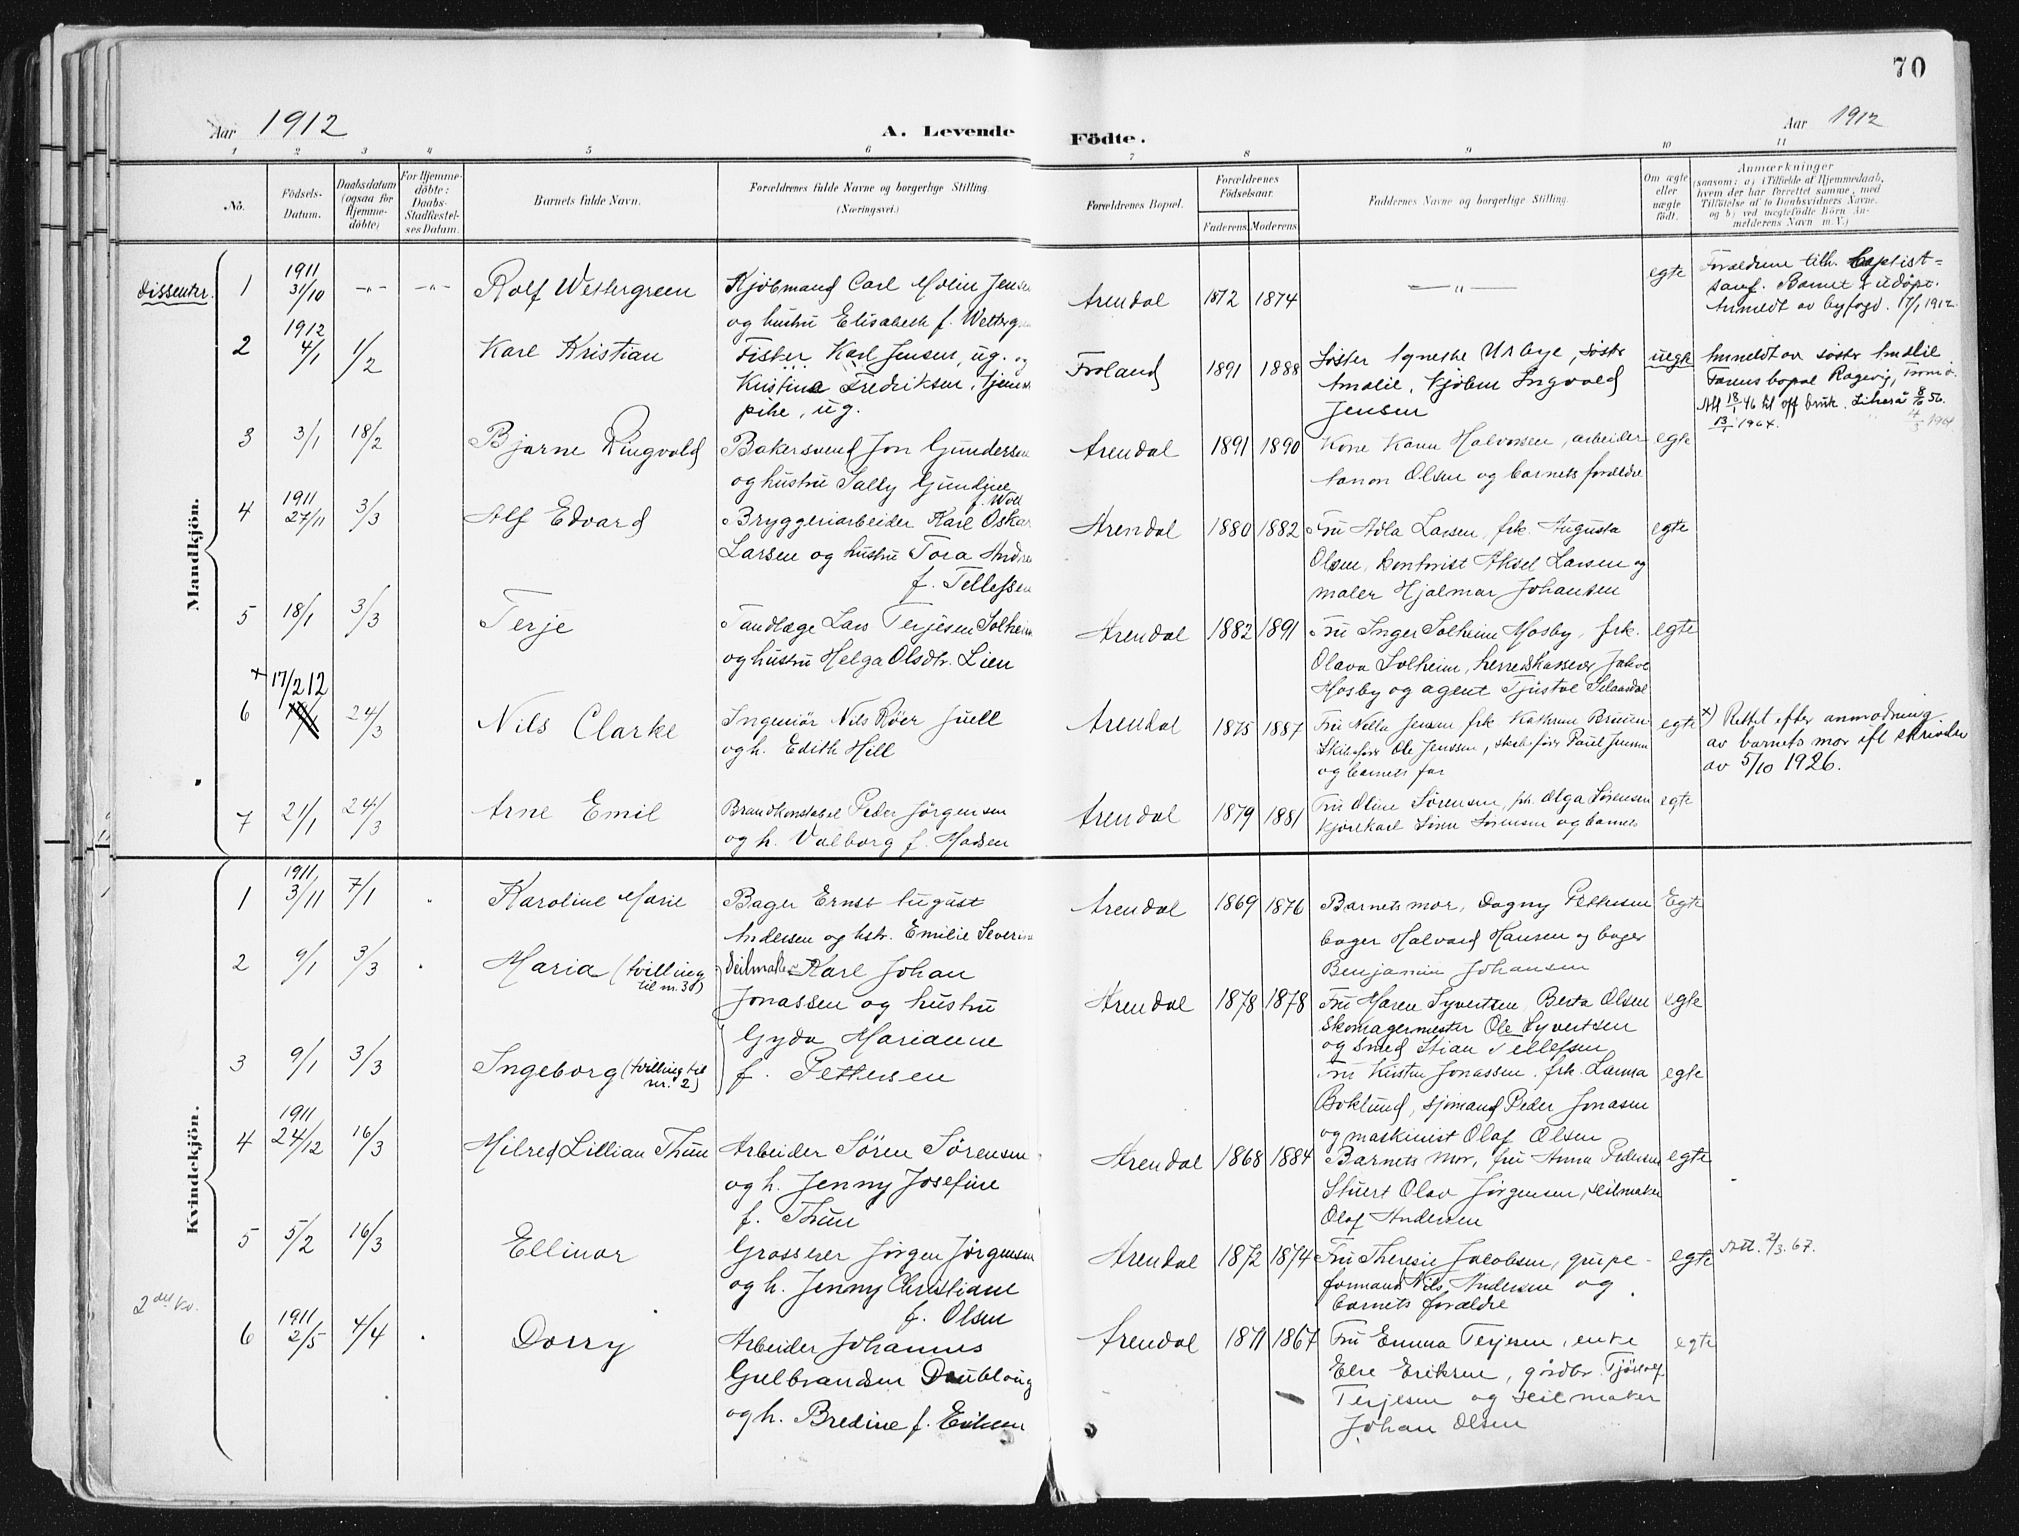 70
Aar 1912
A. Levende
Födte.
Aar 1912
1 2 3 4 5 6 7 8 9 10 11
No.
Födsels-Datum.
Daabsdatum (ogsaa for Hjemme-döbte)
For Hjemme-döbte: Daabs-Stadfæstel-ses Datum.
Barnets fulde Navn.
Forældrenes fulde Navne og borgerlige Stilling.
(Næringsvei.)
Forældrenes Bopæl.
Forældrenes Födselsaar.
Faderens Moderens
Faddernes Navne og borgerlige Stilling.
Om ægte eller uægte födt.
Anmærkninger
(saasom: a) i Tilfælde af Hjemmedaab,
hvem der har forrettet samme, med
Tilföielse af to Daabsvidners Navne.
og b) ved uægtefödte Börn An-
melderens Navn m.V.)
Mandkjön.
Dissenter. 1 1911 31/10 —"— —"— Rolf Westergreen
Kjøbmand Carl Molin Jensen
og hustru Elisabeth f. Westergr
Arendal 1872 1874 —"— egte
Forældrene tilh. Baptist-
samf. Barnet udøpt.
Anmeldt av byfogd. 17/1 1912.
2 1912 4/1 1/2 Karl Kristian
Fisker Karl Jensen, ug. og
Kristina Fredriksen, tjeneste
pike, ug.
Froland 1891 1888
Søster Agnethe Urbye, søster
Amalie, kjøbm Ingvald
Jensen
uegte
Anmeldt av søster Amalie
Farens bopæl Ragevig, Tromø.
Att 18/1 46 til off bruk. 8/6 56.
13/1 1964.
3 3/1 18/2 Bjarne Dingvold
Bakersvend Jon Gundersen
og hustru Sally Gundine
f. Woll
Arendal 1891 1890
Kone Karen Halvorsen, arbeider
Hanon Olsen og barnets forældre
egte
4 1911 27/11 3/3 Alf Edvard
Bryggeriarbeider Karl Oskar
Larsen og hustru Tora Andrea
f. Tellefsen
Arendal 1880 1882
Fru Adla Larsen, frk. Augusta
Olsen, kontorist Aksel Larsen og
maler Hjalmar Johansen
egte
5 18/1 3/3 Terje
Tandlæge Lars Terjesen Solheim
og hustru Helga Olsdtr. Lien
Arendal 1882 1891
Fru Inger Solheim Mosby, frk.
Olava Solheim, herredskasserer Jakob
Mosby og agent Tjostol Selaasdal
egte
+ 17/2 12
6 24/3 Nils Clarke
Ingeniør Nils Røer Juell
og h. Edith Hill
Arendal 1875 1887
Fru Nella Jensen frk. Kathrine Bruun
Skibsfører Ole Jenssen, skibsfører Paul Jensen
og barnets far
egte
+) Rettet efter anmodning
av barnets mor ifl skrivelse
av 5/10 1926.
7 21/1 24/3 Arne Emil
Brandkonstabel Peder Jörgensen
og h. Valborg f. Madsen
Arendal 1879 1881
Fru Oline Sørensen, frk. Olga Sørensen
kjørekarl Søren Sørensen og barnets
egte
Kvindekjön.
1 1911 3/11 7/1 Karoline Marie
Bager Ernst August
Andersen og hstr. Emilie Severine
Arendal 1869 1876
Barnets mor, Dagny Pettersen
bager Halvard Hansen og bager
Benjamin Johansen
Egte
2 9/1 3/3 Maria (tvilling
til nr. 3)
Seilmaker Karl Johan
Jonassen og hustru
Gyda Marianne
f. Pettersen
Arendal 1878 1878
Fru Maren Syvertsen Berta Olsen
Skomagermester Ole Syvertsen
og smed Stian Tellefsen
egte
3 9/1 3/3 Ingeborg (tvilling til
nr. 2)
Fru Kirsten Jonassen, frk. Laura
Boklund, sjømand Peder Jonasen
og maskinist Olaf Olsen
egte
4 1911 24/12 16/3 Milred Lillian Thun
Arbeider Søren Sørensen
og h. Jenny Josefine
f. Thun
Arendal 1868 1884
Barnets mor, fru Anna Pedersen
Stuert Olav Jørgensen, seilmaker
Olaf Andersen
egte
5 5/2 16/3 Ellinor
Grosserer Jørgen Jørgensen
og h. Jenny Christiane
f. Olsen
Arendal 1872 1874
Fru Theresie Jacobsen, gruppe-
formand Nils Andersen og
barnets forældre
egte
Att. 2/3. 67.
2det kv.
6 1911 2/5 4/4 Dorry
Arbeider Johannes
Gulbrandsen Doubloug
og h. Bredine f. Eriksen
Arendal 1871 1867
Fru Emma Terjesen, enke
Else Eriksen, gårdbr. Tjøstolf
Terjesen og seilmaker
Johan Olsen
egte